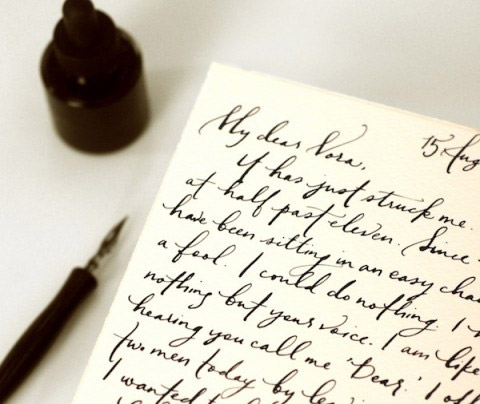 15 Aug
My dear Nora,
It has just struck me.
at half past eleven. Since
have been sitting in an easy chai
a fool. I could do nothing. I
nothing but your voice. I am like
hearing you call me 'Dear.' I off
two men today by
I wanted